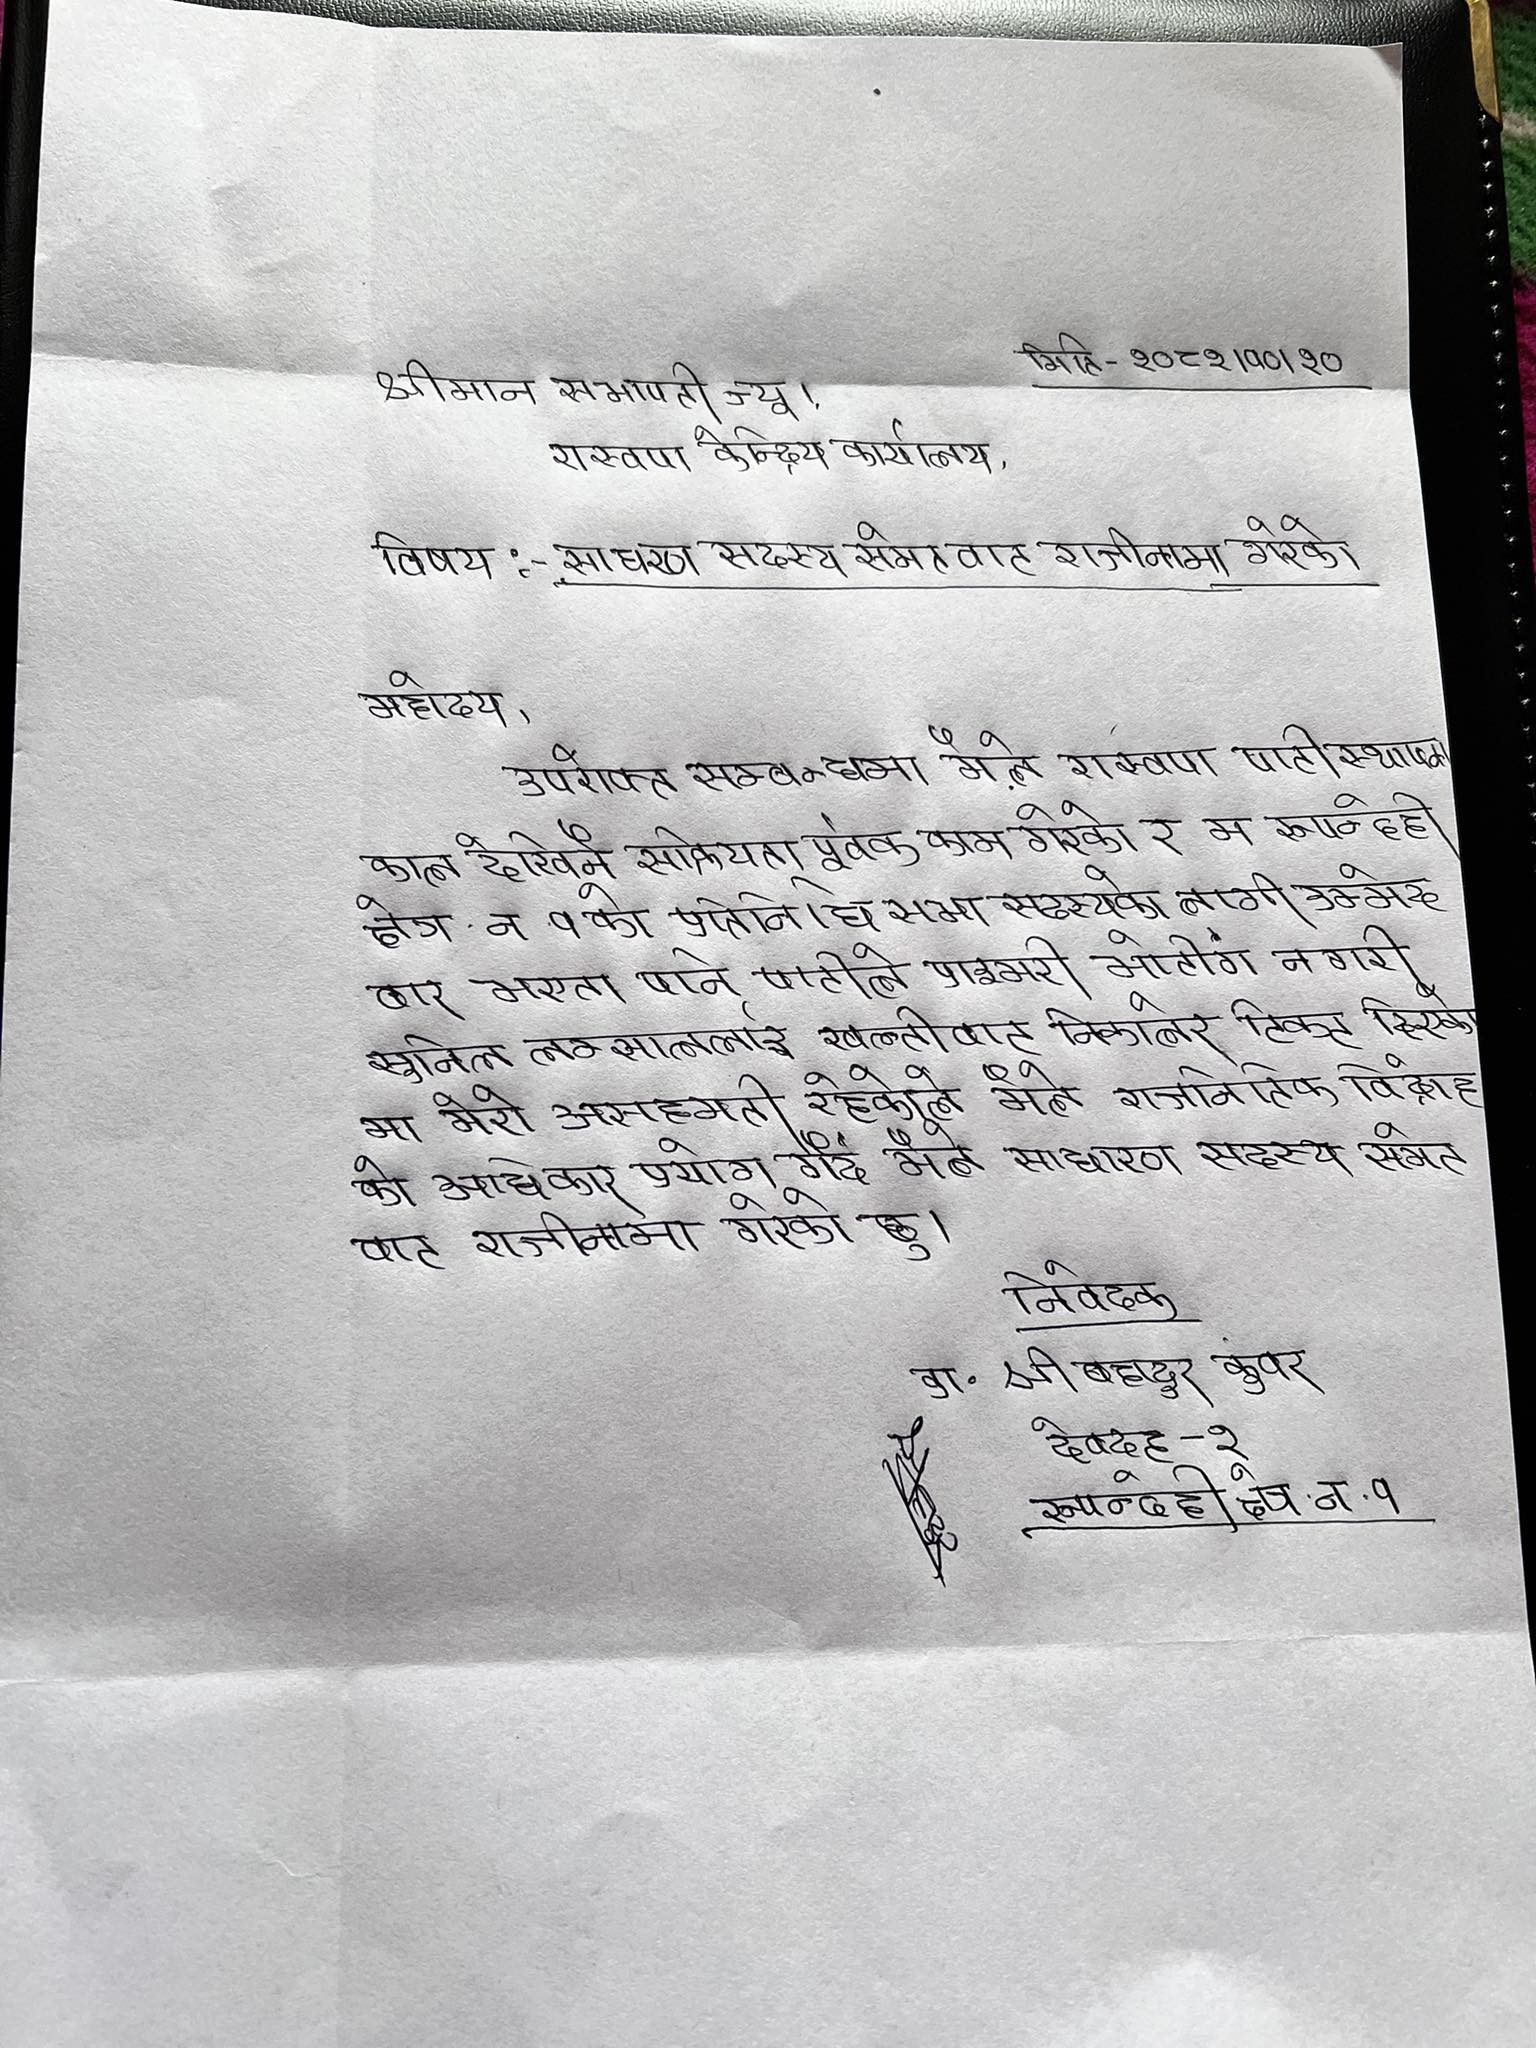 मिति - २०८२।१०।२०
श्रीमान सभापती ज्यू।,
रास्वपा केन्द्रिय कार्यालय,
विषय :- साधरण सदस्य समेत वाट राजीनामा गरेको
महोदय,
उपरोक्त सम्बन्धमा मैले रास्वपा पार्टी स्थापना
काल देखिनै सक्रियता पूर्वक काम गरेको र म रूपन्देही
क्षेत्र. न १ को प्रतिनिधि सभा सदस्यको लागी उम्मेद
बार भएता पनि पार्टीले प्राइमरी भोटीगं न गरी
सुनिल लम्साललाई खल्तीवाट निकालेर टिकट दिएको
मा मेरो असहमती रहेकोले मैले राजनितिक विद्रोह
को अधिकार प्रयोग गर्दै मैले साधारण सदस्य समेत
वाट राजीनामा गरेको छु।
निवेदक
डा. श्री बहादुर कुंवर
देवदह - २
रूपन्देही क्षेत्र. न. १